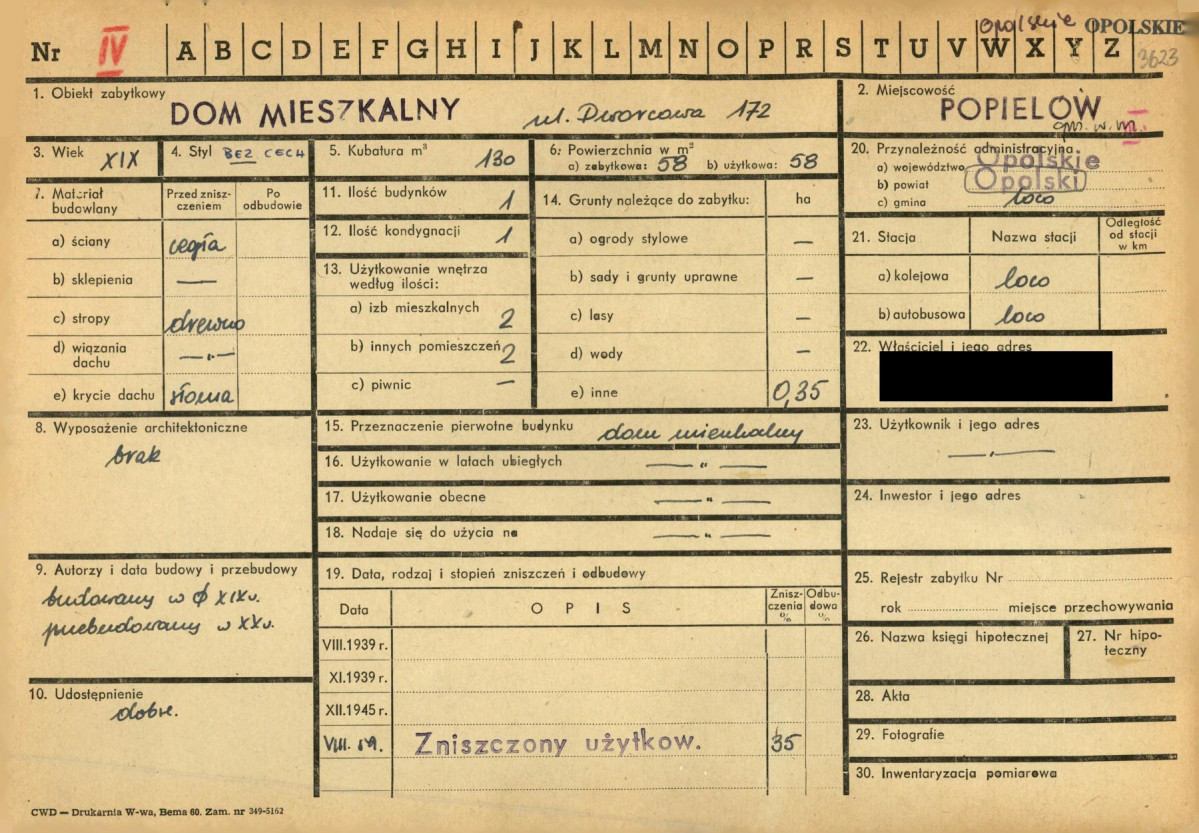 Nr IV A B C D E F G H I J K L M N O P R S T U V W X Y Z
opolskie OPOLSKIE
3623
1. Obiekt zabytkowy DOM MIESZKALNY ul. Dworcowa 172
2. Miejscowość POPIELÓW
gm. w m.
3. Wiek XIX
4. Styl BEZ CECH
5. Kubatura m³ 130
6. Powierzchnia w m²
a) zabytkowa: 58 b) użytkowa: 58
20. Przynależność administracyjna
a) województwo Opolskie
b) powiat Opolski
c) gmina loco
7. Materiał budowlany
Przed zniszczeniem
Po odbudowie
a) ściany cegła
b) sklepienia —
c) stropy drewno
d) wiązania dachu —„—
e) krycie dachu słoma
11. Ilość budynków 1
12. Ilość kondygnacji 1
13. Użytkowanie wnętrza według ilości:
a) izb mieszkalnych 2
b) innych pomieszczeń 2
c) piwnic —
14. Grunty należące do zabytku: ha
a) ogrody stylowe —
b) sady i grunty uprawne —
c) lasy —
d) wody —
e) inne 0,35
21. Stacja Nazwa stacji Odległość od stacji w km
a) kolejowa loco
b) autobusowa loco
22. Właściciel i jego adres
8. Wyposażenie architektoniczne
brak
15. Przeznaczenie pierwotne budynku dom mieszkalny
16. Użytkowanie w latach ubiegłych —„—
17. Użytkowanie obecne —„—
18. Nadaje się do użycia na —„—
23. Użytkownik i jego adres
—„—
24. Inwestor i jego adres
9. Autorzy i data budowy i przebudowy
budowany w XIX w.
przebudowany w XX w.
10. Udostępnienie
dobre.
19. Data, rodzaj i stopień zniszczeń i odbudowy
Data OPIS Zniszczenia % Odbudowa %
VIII.1939 r.
XI.1939 r.
XII.1945 r.
VIII. 59. Zniszczony użytkow. 35
25. Rejestr zabytku Nr
rok miejsce przechowywania
26. Nazwa księgi hipotecznej
27. Nr hipoteczny
28. Akta
29. Fotografie
30. Inwentaryzacja pomiarowa
CWD — Drukarnia W-wa, Bema 60. Zam. nr 349-5162